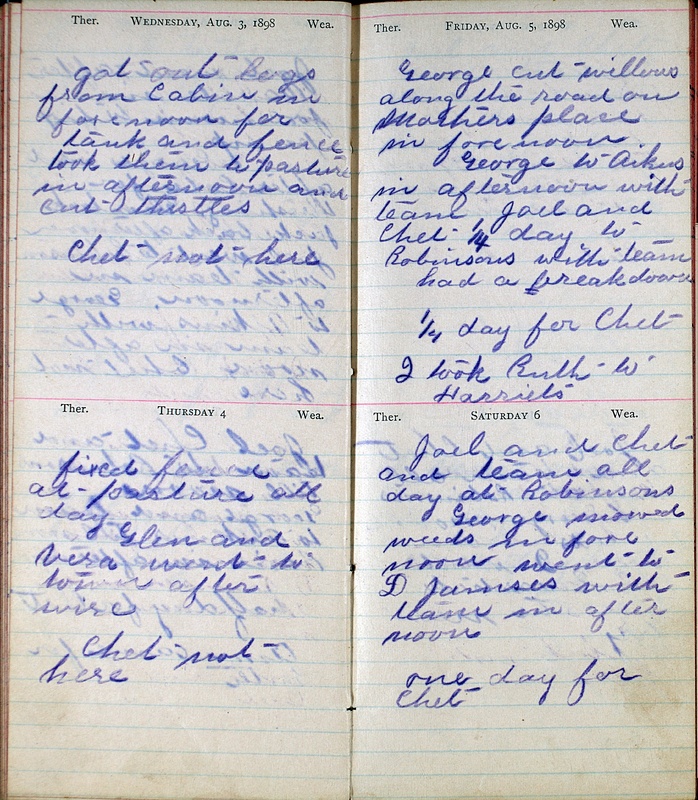 Ther. WEDNESDAY, AUG. 3, 1898 Wea.
got out logs
from Cabin in
forenoon for
tank and fence
took them to pasture
in afternoon and
cut thistles
Chet not here
Ther. THURSDAY 4 Wea.
fixed fence
at pasture all
day
Glen and
Vera went to
town after
wire
Chet not
here
Ther. FRIDAY, AUG. 5, 1898 Wea.
George cut willows
along the road on
Mothers place
in fore noon
George to Aikins
in afternoon with
team Joel and
Chet 1/4 day to
Robinsons with team
had a breakdown
1/4 day for Chet
I took Ruth to
Harriets
Ther. SATURDAY 6 Wea.
Joel and Chet
and team all
day at Robinsons
George mowed
weeds in fore
noon went to
D Jamses with
team in after
noon
one day for
Chet